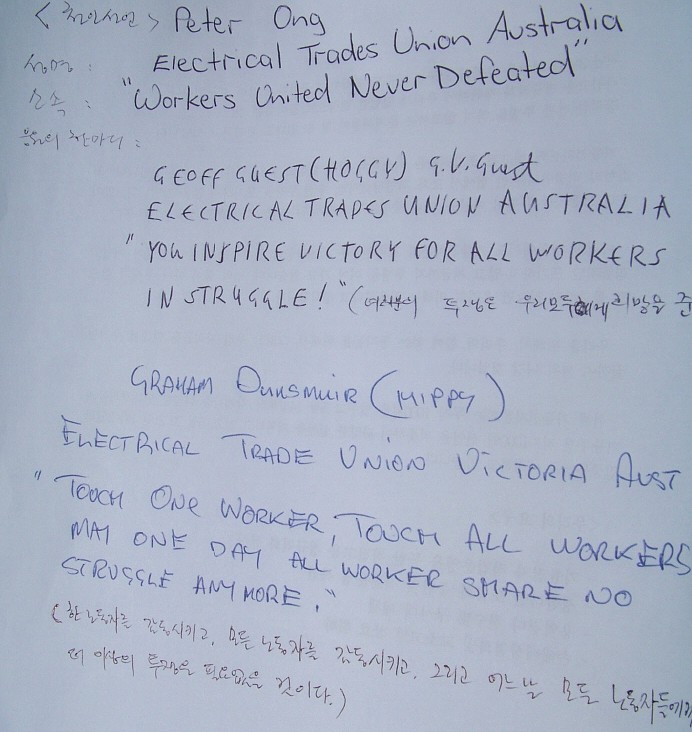 <천인선언> Peter Ong
성명 : Electrical Trades Union Australia
소속 : "Workers United Never Defeated"
응원의 한마디 :
GEOFF GUEST (HOGGY) G.V. Guest
ELECTRICAL TRADES UNION AUSTRALIA
"YOU INSPIRE VICTORY FOR ALL WORKERS
IN STRUGGLE!" (여러분의 투쟁은 우리모두에게 희망을 준
GRAHAM DUNSMUIR (HIPPY)
ELECTRICAL TRADE UNION VICTORIA AUST
"TOUCH ONE WORKER, TOUCH ALL WORKERS
MAY ONE DAY ALL WORKER SHARE NO
STRUGGLE ANYMORE."
(한 노동자를 감동시키고, 모든 노동자를 감동시키고, 그리고 어느날 모든 노동자들에게
더 이상의 투쟁은 필요없을 것이다.)